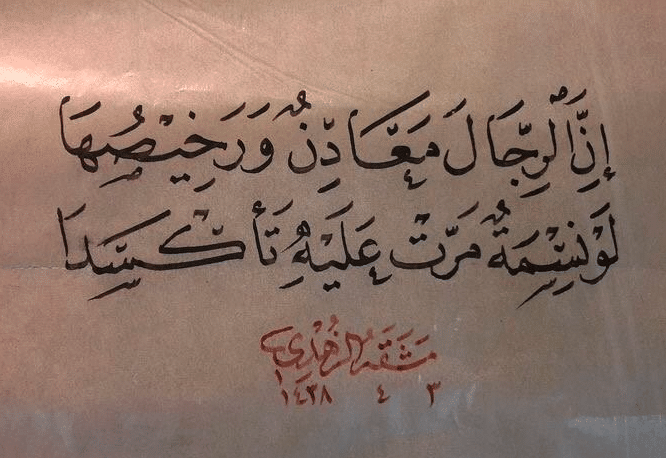 إِنَّ الرِّجَالَ مَعَادِنٌ وَرَخِيصُهَا
لَوْ نِسْمَةٌ مَرَّتْ عَلَيْهِ تَأَكْسَدَا
مشقه الزهدي
٣ ٤ ١٤٣٨